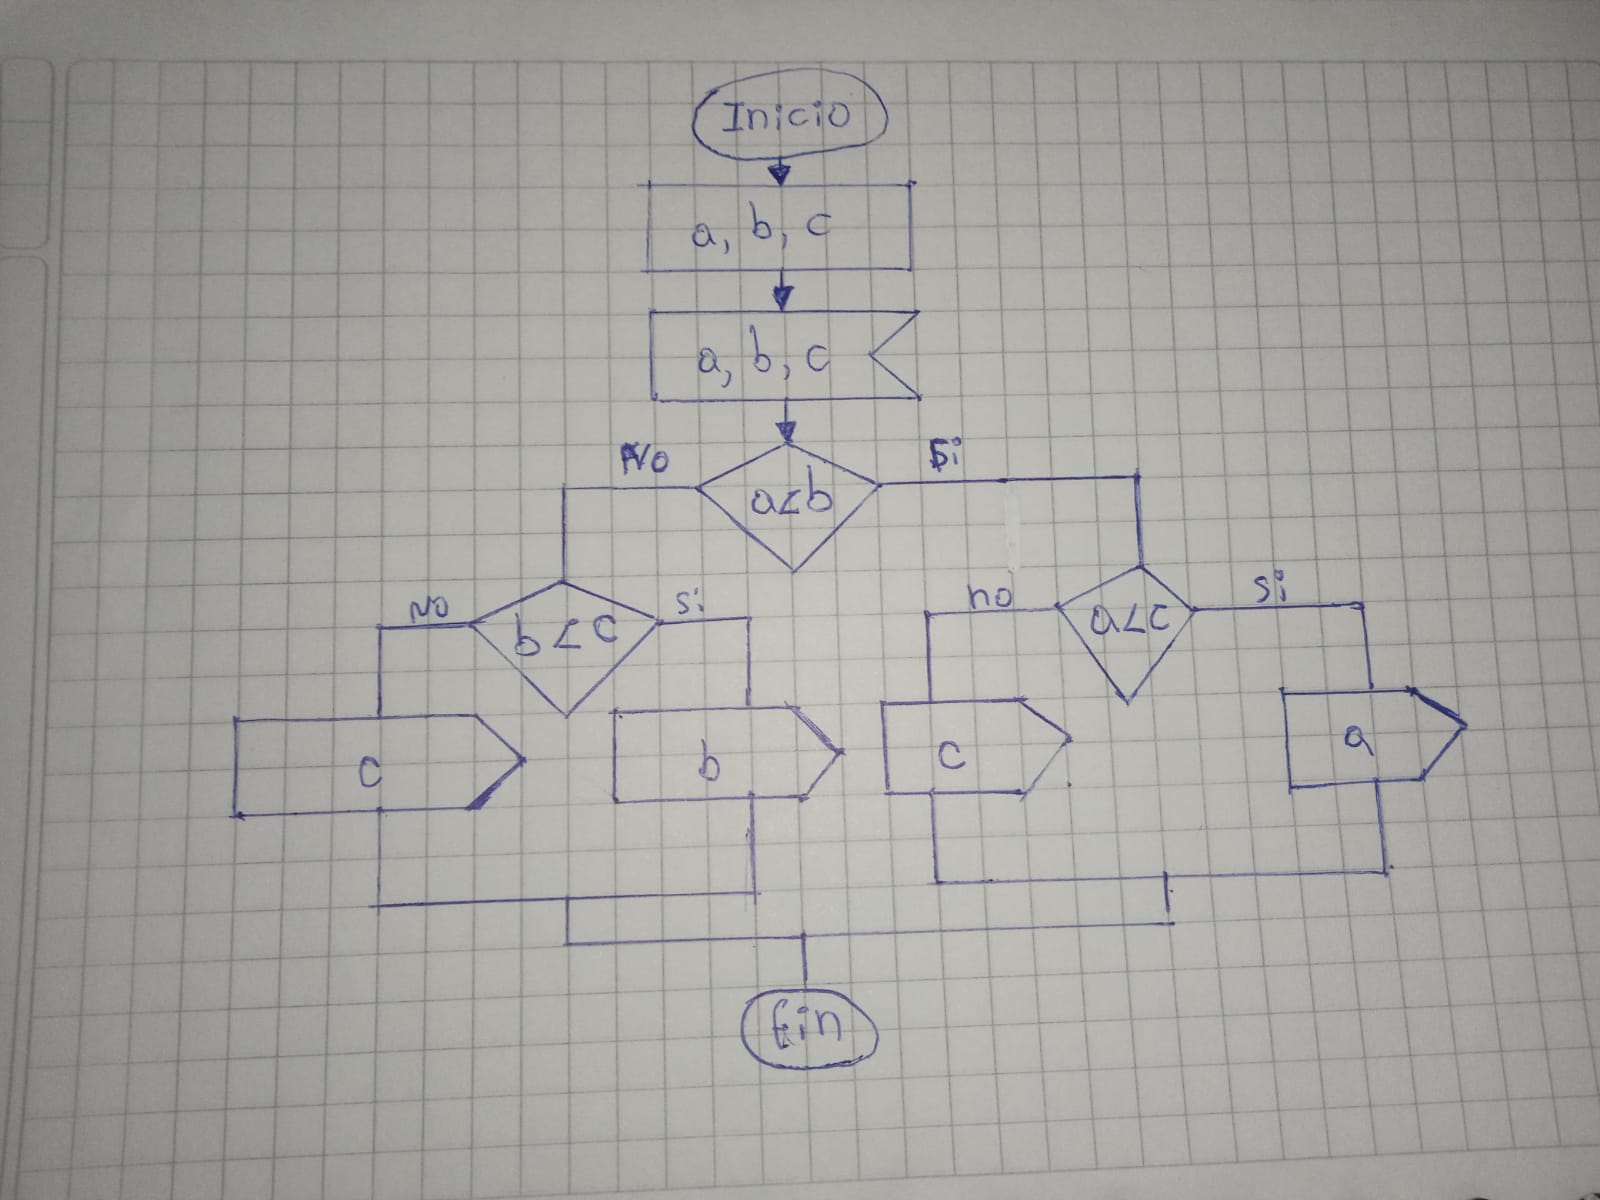 Inicio
a, b, c
a, b, c
No
Si
a<b
No
b<c
si
no
a<c
si
c
b
c
a
fin